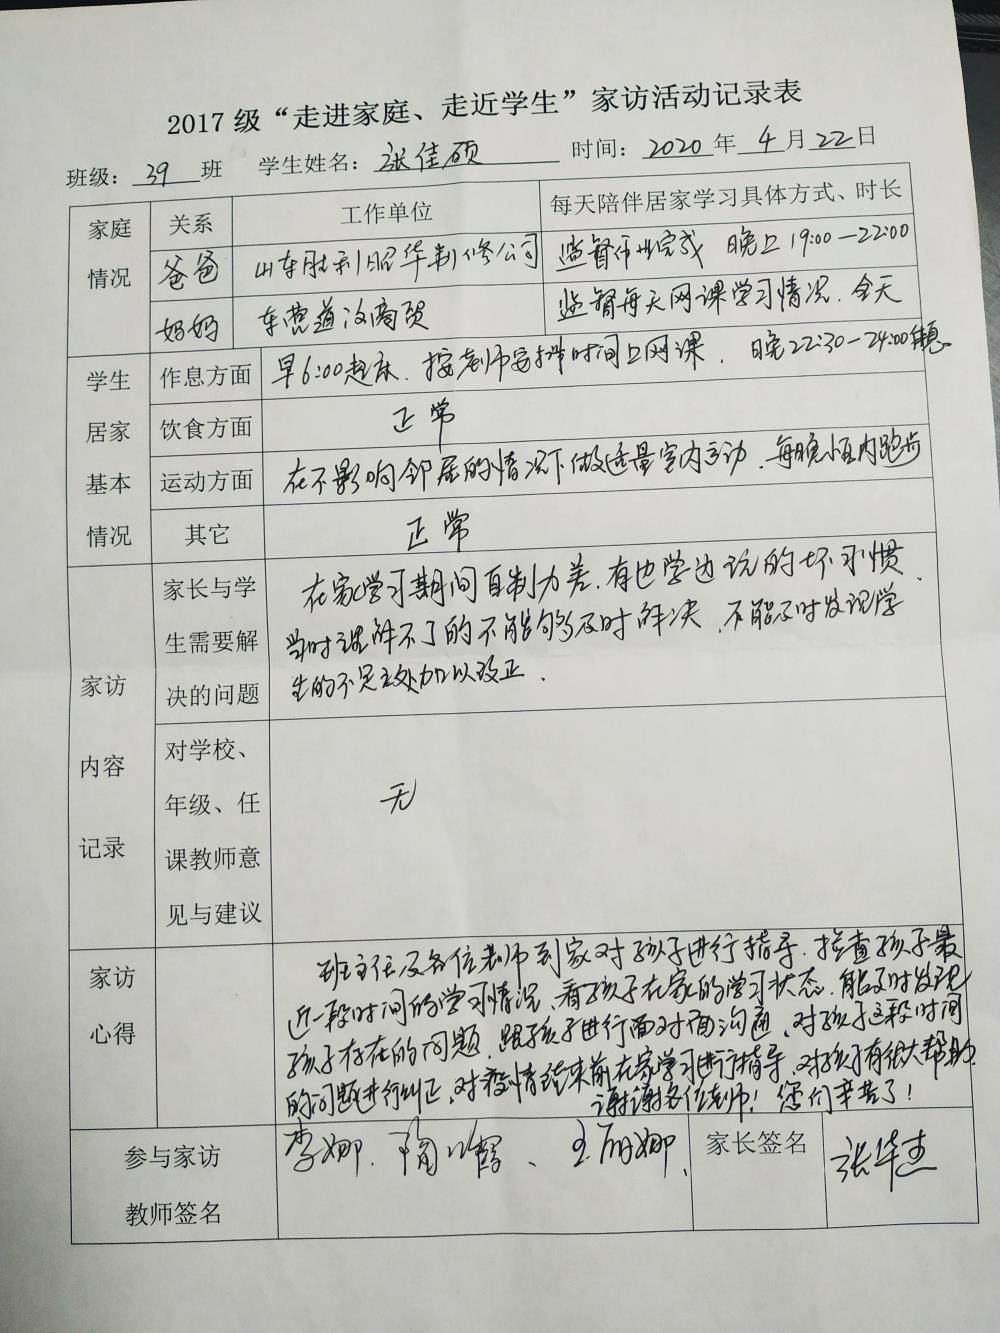 2017 级“走进家庭、走近学生”家访活动记录表
班级: 39 班 学生姓名: 张佳硕 时间: 2020 年 4 月 22 日
家庭 关系 工作单位 每天陪伴居家学习具体方式、时长
情况 爸爸 山东胜利昭华制修公司 监督作业完成 晚上19:00—22:00
妈妈 东营道汶商贸 监督每天网课学习情况.全天
学生 作息方面 早6:00起床、按老师安排时间上网课. 晚22:30—24:00休息
居家 饮食方面 正常
基本 运动方面 在不影响邻居的情况下做适量室内活动、每晚小区内跑步
情况 其它 正常
家长与学 在家学习期间自制力差.有边学边玩的坏习惯.
生需要解 当时理解不了的不能够及时解决、不能及时发现学
决的问题 生的不足之处加以改正.
家访
内容
记录
对学校、
年级、任 无
课教师意
见与建议
家访 班主任及各位老师到家对孩子进行指导.检查孩子最
心得 近一段时间的学习情况、看孩子在家的学习状态.能及时发现
孩子存在的问题.跟孩子进行面对面沟通、对孩子这段时间
的问题进行纠正、对疫情结束前在家学习进行指导、对孩子有很大帮助.
谢谢各位老师!您们辛苦了!
参与家访 李娜、 王丽娜、 家长签名 张华杰
教师签名